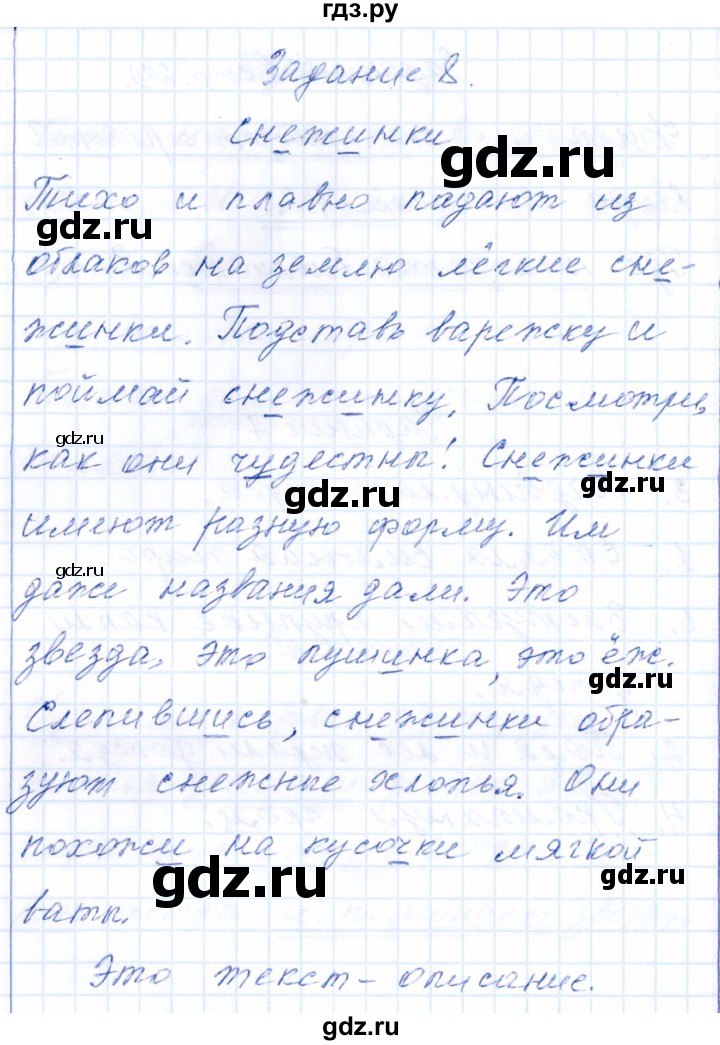 гдз.ру
Задание 8.
Снежинки
gdz.ru
Тихо и плавно падают из
gdz.ru
облаков на землю лёгкие сне-
gdz.ru
жинки. Подставь варежку и
поймай снежинку. Посмотри,
gdz.ru
как они чудестны! Снежинки
gdz.ru
gdz.ru
имеют разную форму. Им
gdz.ru
даже названия дали. Это
звезда, это пушинка, это ёж.
gdz.ru
Слепившись, снежинки обра-
зуют снежные хлопья. Они
похожи на кусочки мягкой
gdz.ru
gdz.ru
ваты.
Это текст - описание.
gdz.ru